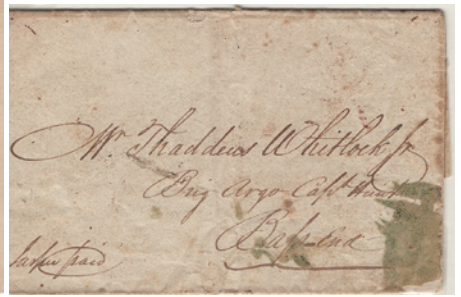 Mr. Thaddeus Whitlock Jr
Brig Argo Capt Hunt
paid